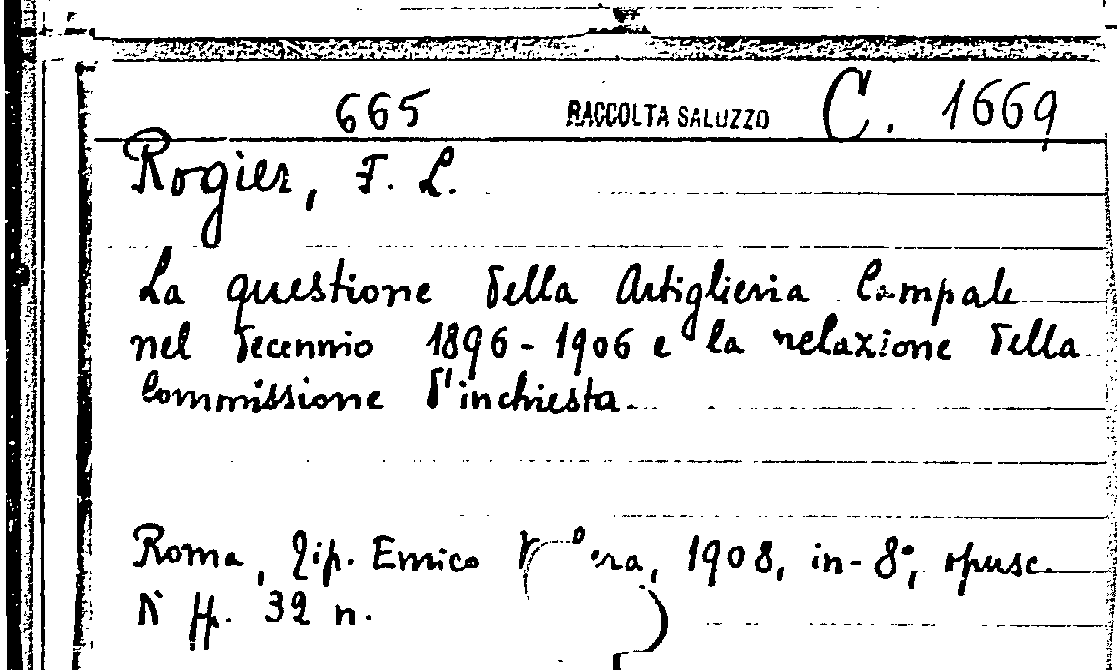 665 RACCOLTA SALUZZO C. 1669
Rogier, F. L.
La questione della Artiglieria Campale
nel decennio 1896-1906 e la relazione della
Commissione d'inchiesta.
Roma, Tip. Enrico 1908, in-8°, opusc.
di pp. 32 n.